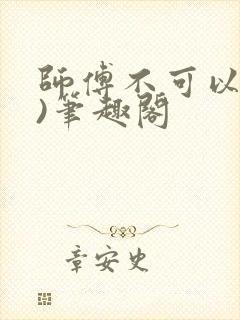 師傅不可以
)筆趣閣
章安史